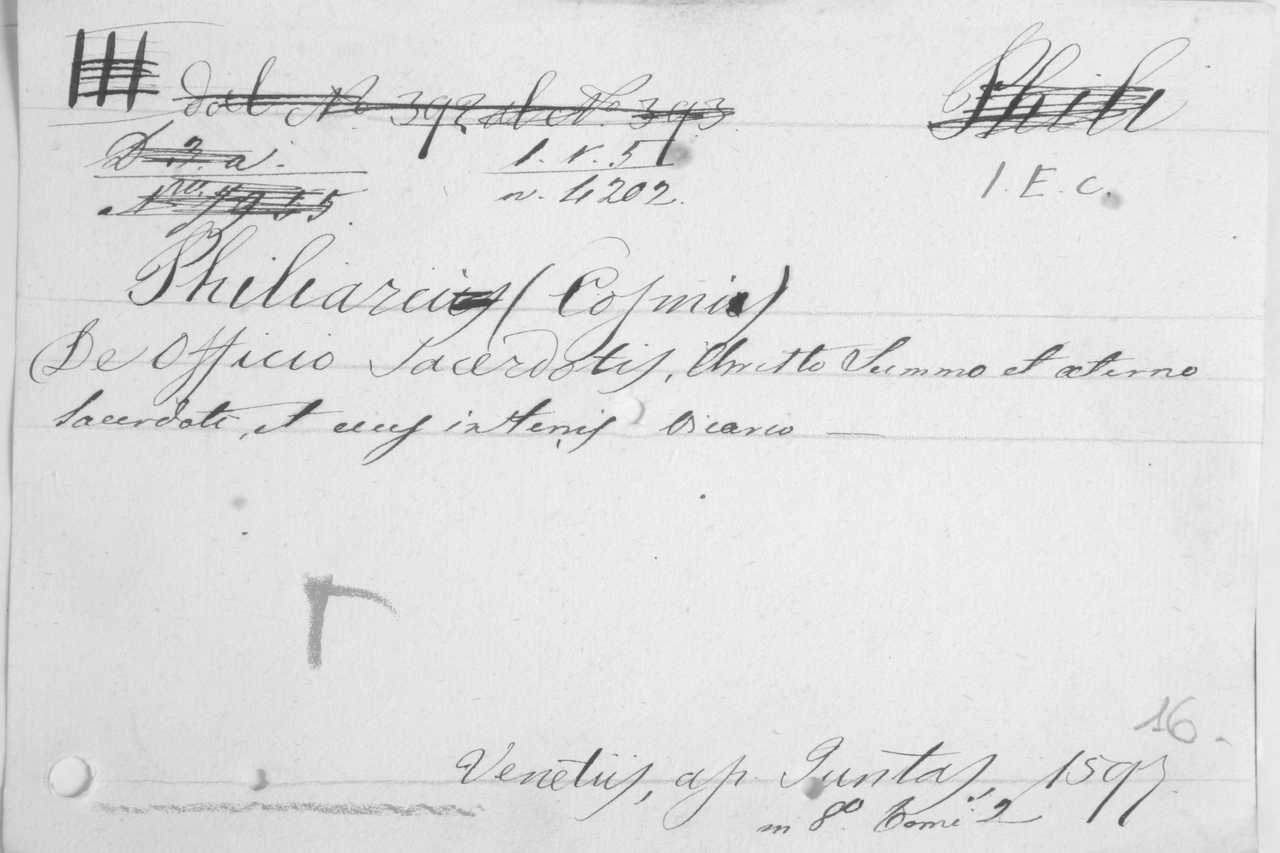 III
dal No. 392 al No. 393
Phili
D. 3. a.
1. V. 5
Nro. 7955.
n. 4202.
I. E. C.
Philiarcus (Cosmia)
De Officio Sacerdotis, Christo Summo et æterno
Sacerdoti, et eius in terris Vicario —
16.
Venetiis, ap. Juntas, 1597.
in 8º. Tomi 2